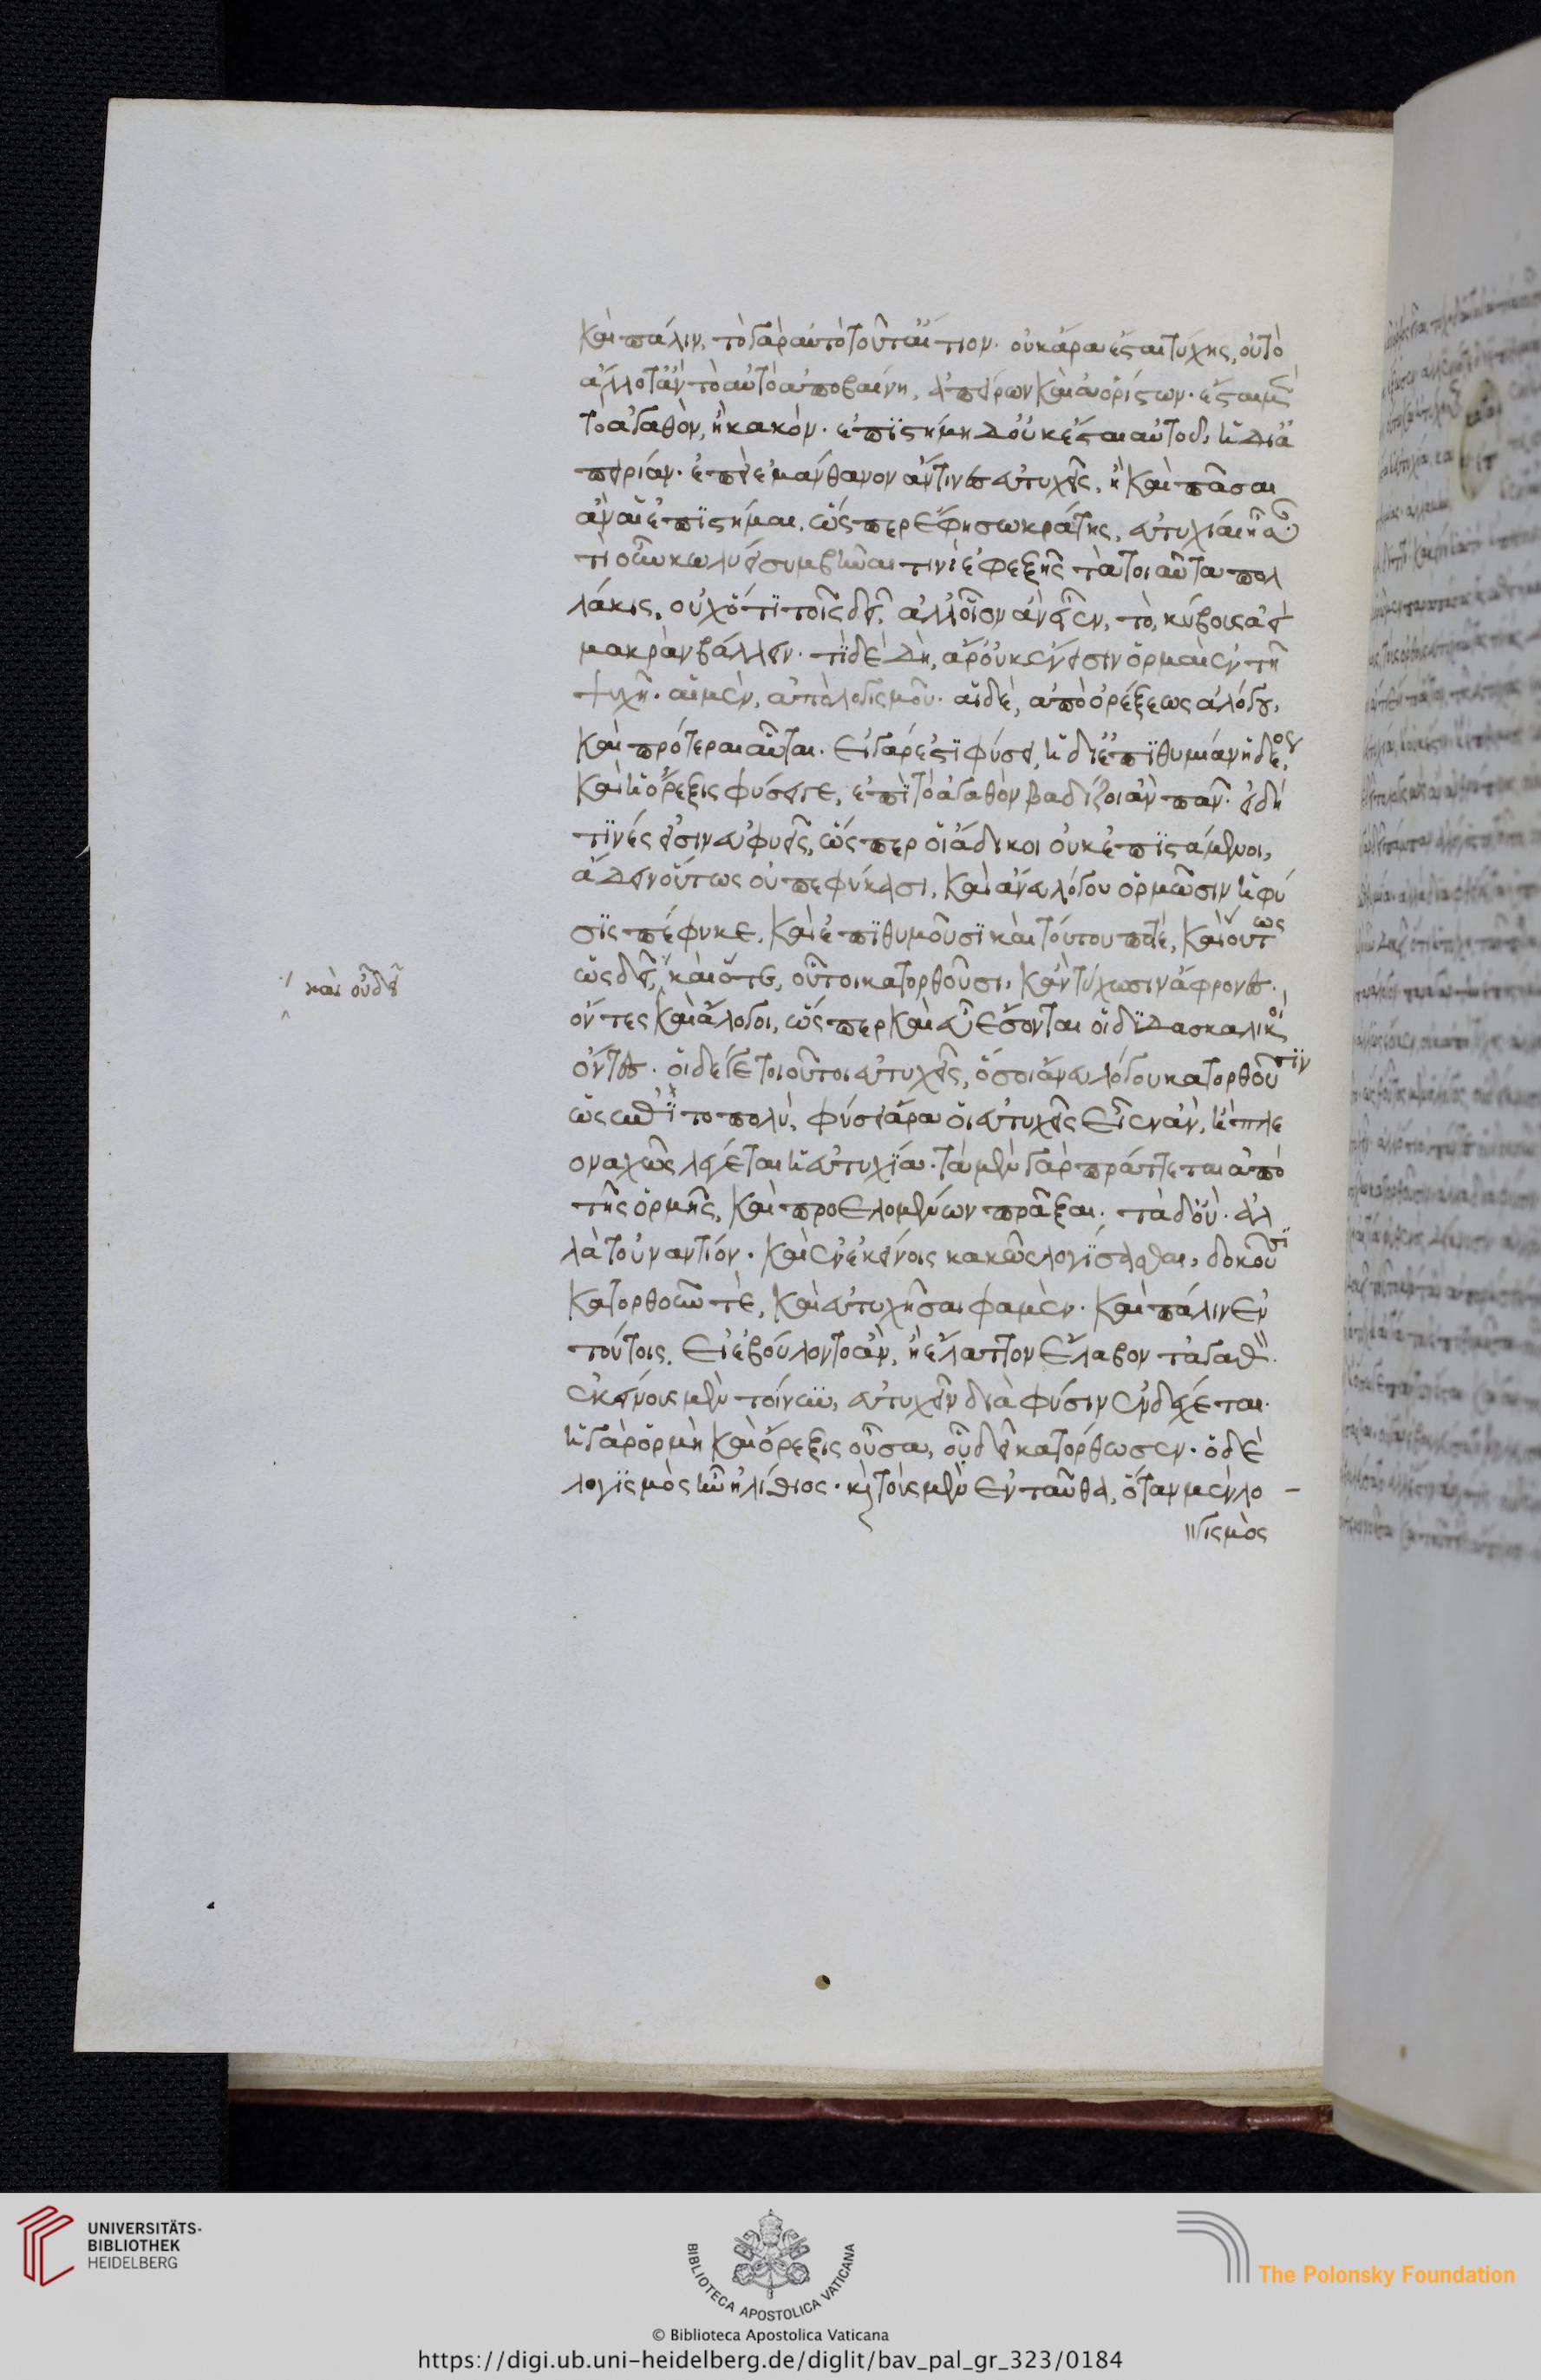 καὶ πάλιν, τὸ γὰρ αὐτὸ τοῦτ' αἴτιον. οὐκ ἄρα ἔσται τύχης, οὐ τὸ
ἀλλ' ὅταν τὸ αὐτὸ ἀποβαίνη, ἀπείρων καὶ ἀορίστων. ἔσται μὲν
τὸ ἀγαθὸν, ἢ κακὸν. ἐπιστήμη δ' οὐκ ἔσται αὐτοῦ, ἡ δι' ἀ
πειρίαν. ἐπεὶ ἐμάνθανον ἄν τινες εὐτυχεῖς, ἢ καὶ πᾶσαι
ἂν αἱ ἐπιστῆμαι, ὥσπερ ἔφη σωκράτης, εὐτυχίαι ἦσαν.
τί οὖν κωλύει συμβῆναι τινὶ ἐφεξῆς τὰ τοιαῦτα πολ
λάκις, οὐχ ὅτι τοῖς δεῖ, ἀλλ' οἷον ἂν εἴεν, τὸ, κύβους ἀεὶ
μακρὰν βάλλειν. τί δὲ δὴ, ἆρ' οὐκ ἔνεισιν ὁρμαὶ ἐν τῆ
ψυχῆ. αἱ μὲν, ἀπὸ λογισμοῦ. αἱ δὲ, ἀπὸ ὀρέξεως ἀλόγου,
καὶ πρότεραι αὗται. εἰ γάρ ἐστι φύσει, ἡ δι' ἐπιθυμίαν ἡδέος,
καὶ ἡ ὄρεξις φύσει γε, ἐπὶ τὸ ἀγαθὸν βαδίζοι ἂν πᾶν. εἰ δή
τινές εἰσιν εὐφυεῖς, ὥσπερ οἱ ἄδικοι οὐκ ἐπιστάμενοι,
ἄδειν οὕτως εὖ πεφύκασι, καὶ ἄνευ λόγου ὁρμῶσιν ἡ φύ
σις πέφυκε, καὶ ἐπιθυμοῦσι καὶ τούτου ποτέ, καὶ οὕτως
ὡς δεῖ, καὶ ὅτε, οὗτοι κατορθοῦσι, κἂν τύχωσιν ἄφρονες
ὄντες καὶ ἄλογοι, ὥσπερ καὶ εὖ ἔσονται οἱ διδασκαλικοὶ
ὄντες. οἱ δέ γε τοιοῦτοι εὐτυχεῖς, ὅσοι ἄνευ λόγου κατορθοῦσιν
ὡς ἐπὶ το πολύ, φύσει ἄρα οἱ εὐτυχεῖς εἶεν ἂν, ἢ πλε
οναχῶς λέγεται ἡ εὐτυχία. τὰ μὲν γὰρ πράττεται ἀπὸ
τῆς ὁρμῆς, καὶ προελομένων πρᾶξαι. τὰ δ' οὔ. ἀλ
λὰ τοὐναντίον. καὶ ἐν ἐκείνοις κακῶς λογίσασθαι, δοκοῦσι
κατορθοῦντε, καὶ εὐτυχῆσαι φαμὲν. καὶ πάλιν ἐν
τούτοις, εἰ ἐβούλοντο ἂν, ἢ ἔλαττον ἔλαβον τἀγαθ.
ἐκείνους μὲν τοίνυν, εὐτυχεῖν διὰ φύσιν ἐνδέχεται.
ἡ γὰρ ὁρμὴ καὶ ὄρεξις οὖσα, οὗ δεῖ κατόρθωσεν. ὁ δὲ
λογισμὸς ἦν ἠλίθιος. καὶ τοὺς μὲν ἐνταῦθα, ὅταν μὲν λο
γισμὸς
καὶ οὗ δεῖ
UNIVERSITÄTS-
BIBLIOTHEK
HEIDELBERG
BIBLIOTECA APOSTOLICA VATICANA
The Polonsky Foundation
© Biblioteca Apostolica Vaticana
https://digi.ub.uni-heidelberg.de/diglit/bav_pal_gr_323/0184